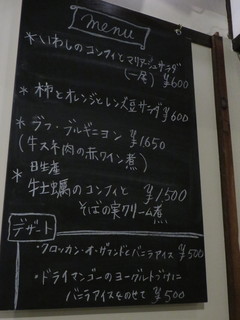 menu
*いわしのコンフィとマリネージュサラダ
(一尾) ¥600
*柿とオレンジとレンズ豆サラダ ¥600
*ブフ・ブルギニヨン ¥1,650
(牛スネ肉の赤ワイン煮)
日生産
*牡蠣のコンフィと ¥1,500
そばの実クリーム煮
デザート
・クロッカン・オ・ザマンドとバニラアイス ¥500
・ドライマンゴーのヨーグルトづけに
バニラアイスをのせて ¥500